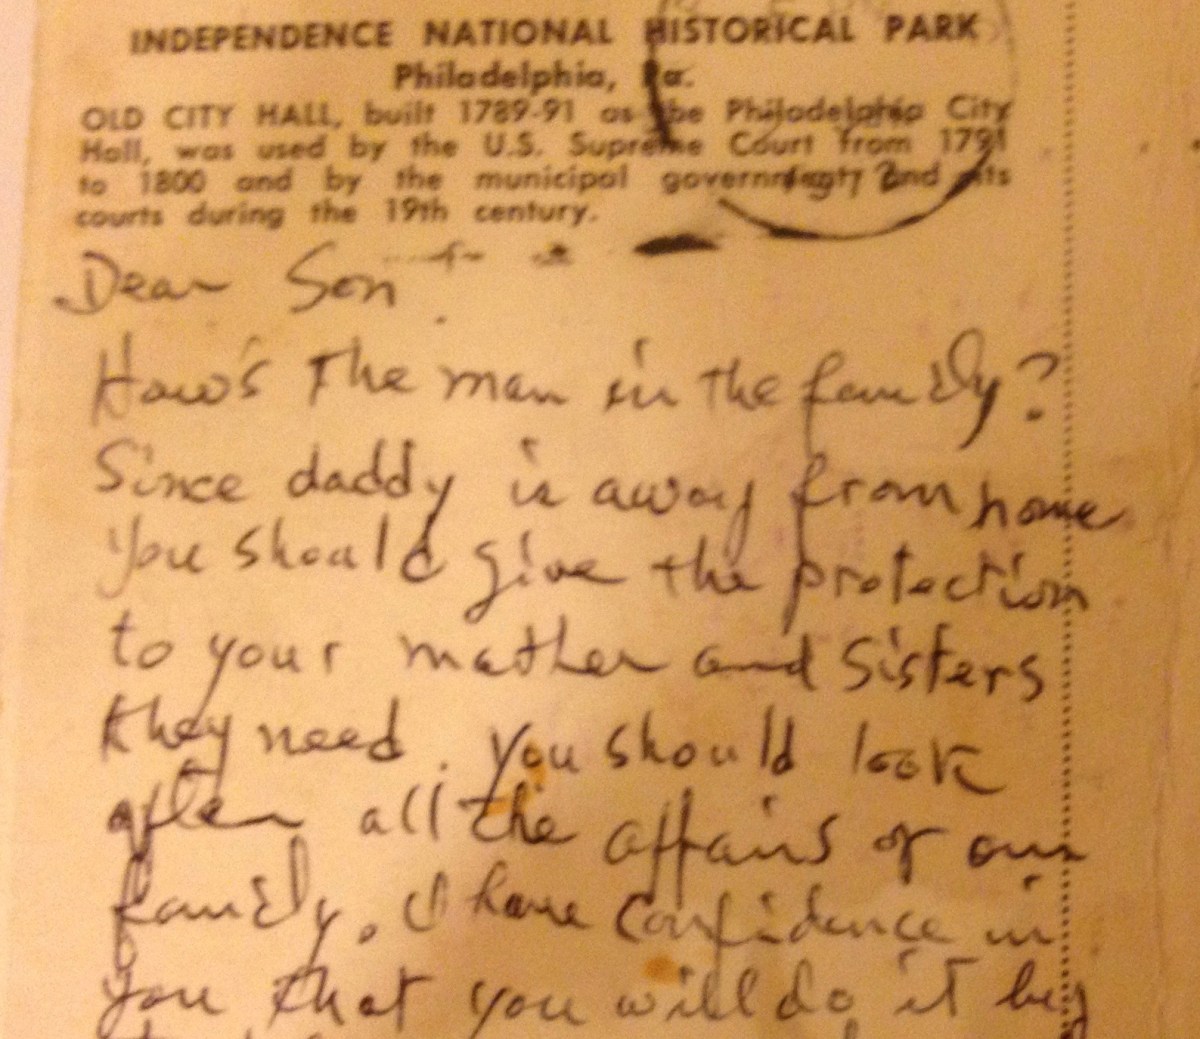 INDEPENDENCE NATIONAL HISTORICAL PARK
Philadelphia, Pa.
OLD CITY HALL, built 1789-91 as the Philadelphia City
Hall, was used by the U.S. Supreme Court from 1791
to 1800 and by the municipal government and its
courts during the 19th century.
Dear Son
How's the man in the family?
Since daddy is away from home
you should give the protection
to your mother and sisters
they need. You should look
after all the affairs of our
family. I have confidence in
you that you will do it